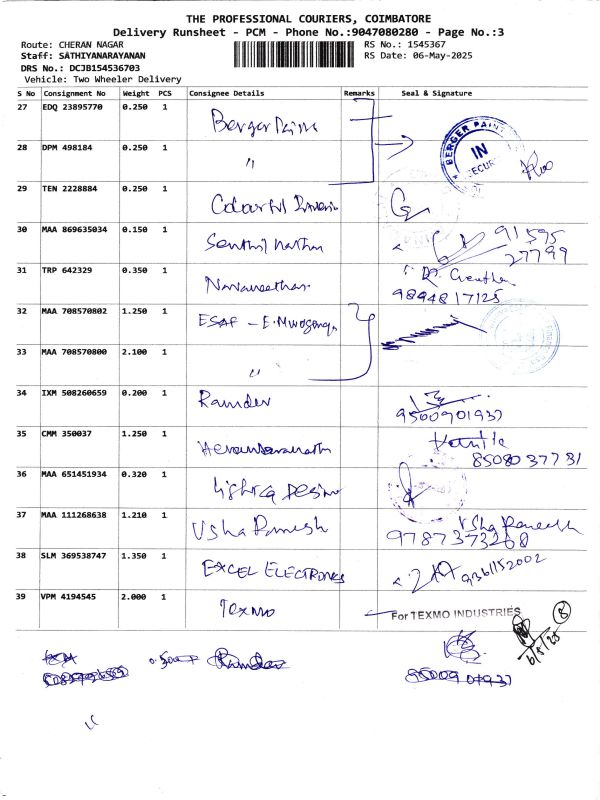 THE PROFESSIONAL COURIERS, COIMBATORE
Delivery Runsheet - PCM - Phone No.:9047080280 - Page No.:3
Route: CHERAN NAGAR RS No.: 1545367
Staff: SATHIYANARAYANAN RS Date: 06-May-2025
DRS No.: DCJB154536703
Vehicle: Two Wheeler Delivery
S No Consignment No Weight PCS Consignee Details Remarks Seal & Signature
27 EDQ 23895770 0.250 1 Berger Paints
BERGER PAINT
IN
SECUR
28 DPM 498184 0.250 1 "
29 TEN 2228884 0.250 1 Colourful
30 MAA 869635034 0.150 1 Senthil Nathan 91595
27799
31 TRP 642329 0.350 1 Navaneethan
9894817125
32 MAA 708570802 1.250 1 ESAF -
33 MAA 708570800 2.100 1 "
34 IXM 508260659 0.200 1 Ramdev
9500901937
35 CMM 350037 1.250 1
8508037731
36 MAA 651451934 0.320 1
37 MAA 111268638 1.210 1 Usha Ramesh
9787373268
38 SLM 369538747 1.350 1 EXCEL ELECTRONICS 9361152002
39 VPM 4194545 2.000 1 Texmo For TEXMO INDUSTRIES 8
6/5/25